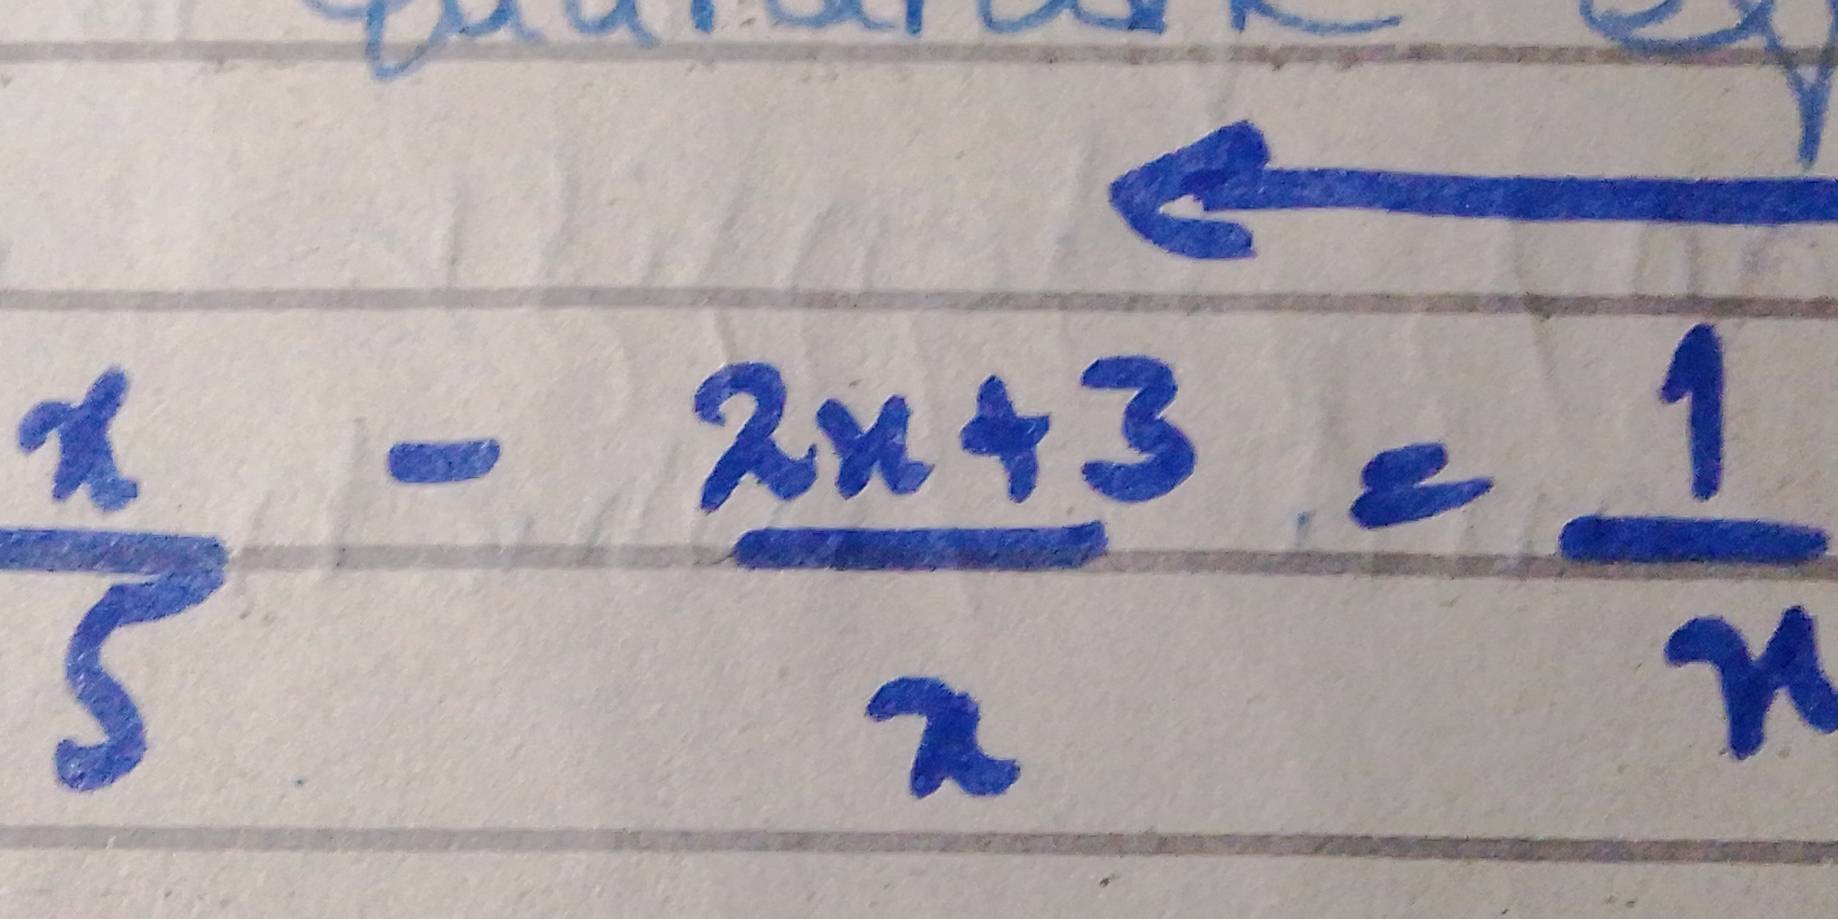 x/5 - 2x+3/x = 1/x